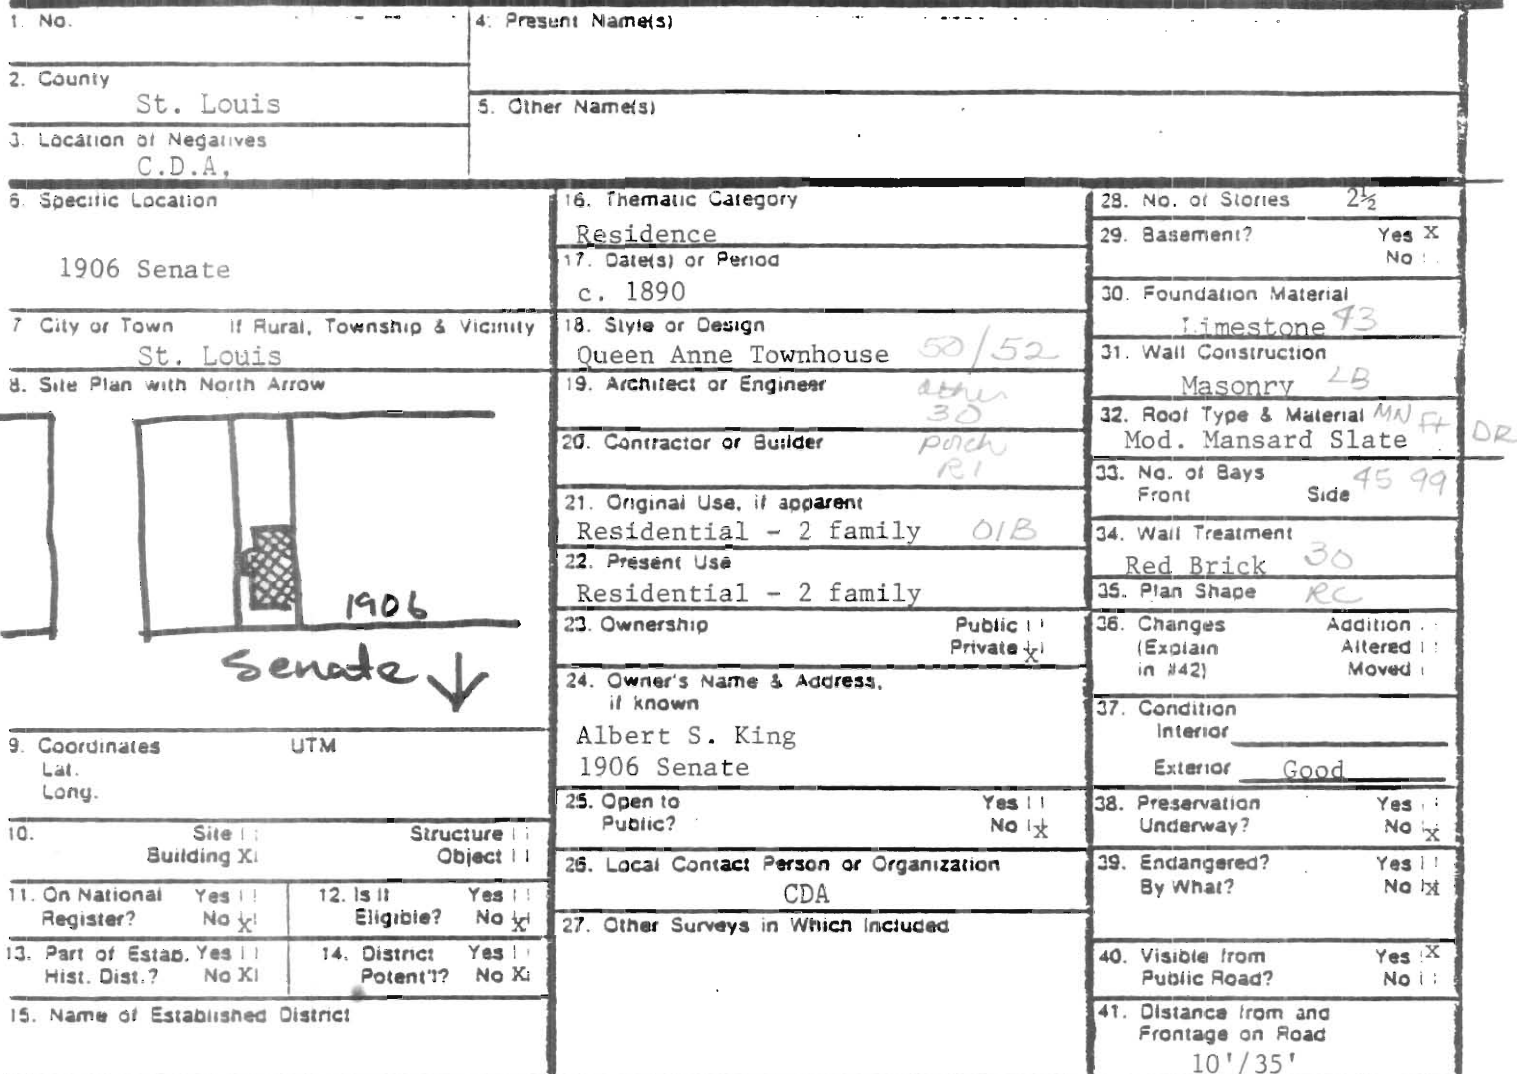 1. No.
4. Present Name(s)
2. County
St. Louis
5. Other Name(s)
3. Location of Negatives
C.D.A.
6. Specific Location
1906 Senate
7 City or Town If Rural, Township & Vicinity
St. Louis
8. Site Plan with North Arrow
1906
Senate
9. Coordinates UTM
Lat.
Long.
10. Site Structure
Building X Object
11. On National Register? Yes No X
12. Is It Eligible? Yes No X
13. Part of Estab. Hist. Dist.? Yes No X
14. District Potent'l? Yes No X
15. Name of Established District
16. Thematic Category
Residence
17. Date(s) or Period
c. 1890
18. Style or Design
Queen Anne Townhouse 50/52
19. Architect or Engineer other
30
20. Contractor or Builder porch
R1
21. Original Use, if apparent
Residential - 2 family 01B
22. Present Use
Residential - 2 family
23. Ownership Public
Private X
24. Owner's Name & Address,
if known
Albert S. King
1906 Senate
25. Open to Yes
Public? No X
26. Local Contact Person or Organization
CDA
27. Other Surveys in Which Included
28. No. of Stories 2½
29. Basement? Yes X
No
30. Foundation Material
Limestone 43
31. Wall Construction
Masonry LB
32. Roof Type & Material MN Ft DR
Mod. Mansard Slate
33. No. of Bays 45 99
Front Side
34. Wall Treatment
Red Brick 30
35. Plan Shape RC
36. Changes Addition
(Explain Altered
in #42) Moved
37. Condition
Interior
Exterior Good
38. Preservation Yes
Underway? No X
39. Endangered? Yes
By What? No X
40. Visible from Yes X
Public Road? No
41. Distance from and
Frontage on Road
10'/35'